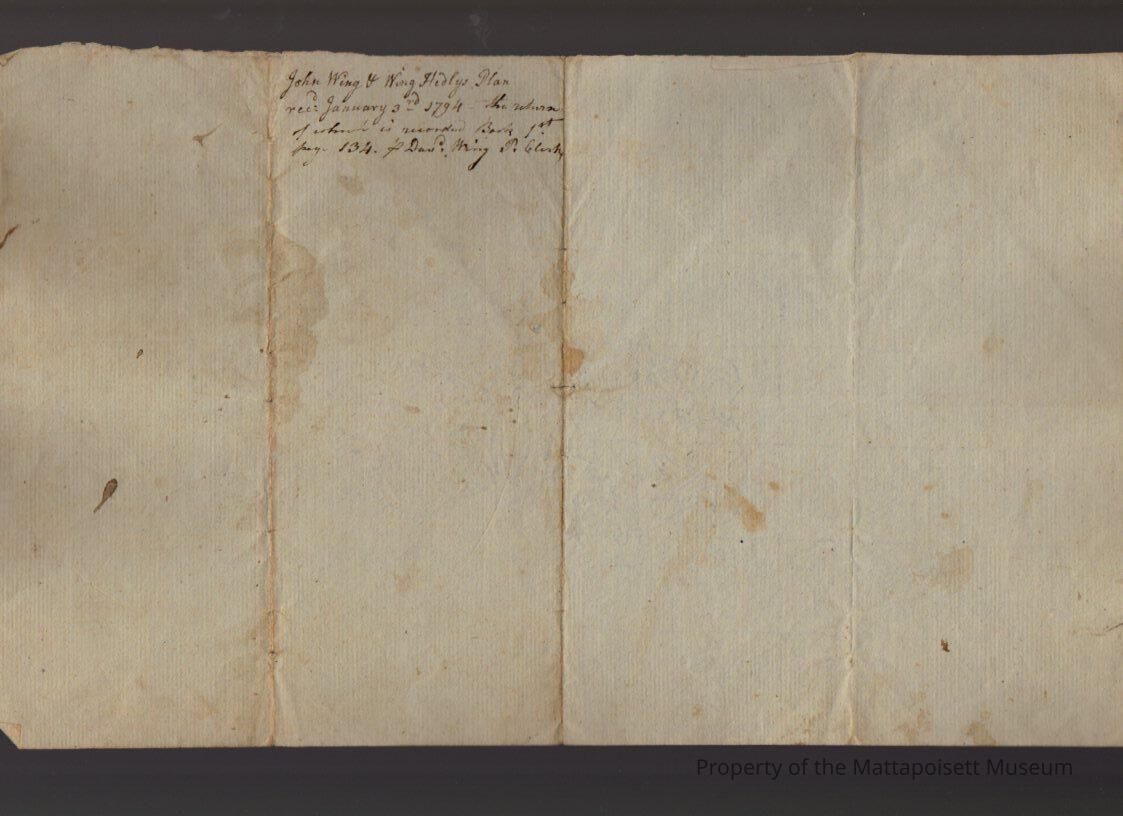 John Wing & Wing Hedlys Plan
rec: January 3rd 1794 the return
of which is recorded Book 1st
page 134. Wing Pr. Clerk
Property of the Mattapoisett Museum